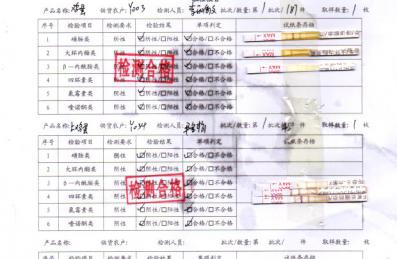 产品名称: 供货农户: Y003 检测人员: 批次/数量: 第 1 / 181 件 取样数量: 1 枚
序号 检验项目 检测要求 检验结果 单项判定 试纸条存档
1 磺胺类 阴性 ☑阴性/□阳性 ☑合格/□不合格
2 大环内酯类 阴性 ☑阴性/□阳性 ☑合格/□不合格
3 β—内酰胺类 阴性 ☑阴性/□阳性 ☑合格/□不合格
4 四环素类 阴性 ☑阴性/□阳性 ☑合格/□不合格
5 氟霉素类 阴性 ☑阴性/□阳性 ☑合格/□不合格
6 喹诺酮类 阴性 ☑阴性/□阳性 ☑合格/□不合格
检测合格
产品名称: 供货农户: 检测人员: 批次/数量: 第 1 / 件 取样数量: 1 枚
序号 检验项目 检测要求 检验结果 单项判定 试纸条存档
1 磺胺类 阴性 ☑阴性/□阳性 ☑合格/□不合格
2 大环内酯类 阴性 ☑阴性/□阳性 ☑合格/□不合格
3 β—内酰胺类 阴性 ☑阴性/□阳性 ☑合格/□不合格
4 四环素类 阴性 ☑阴性/□阳性 ☑合格/□不合格
5 氟霉素类 阴性 ☑阴性/□阳性 ☑合格/□不合格
6 喹诺酮类 阴性 ☑阴性/□阳性 ☑合格/□不合格
检测合格
产品名称: 供货农户: 检测人员: 批次/数量: 第 / 件 取样数量: 枚
序号 检验项目 检测要求 检验结果 单项判定 试纸条存档